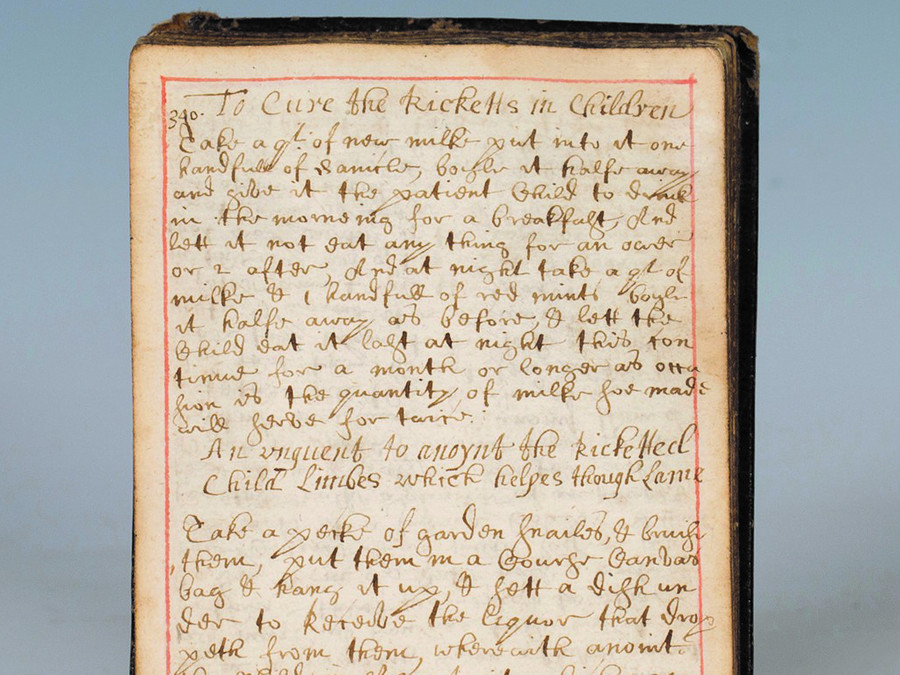 To Cure the Ricketts in Children
340.
Take a qt. of new milke put into it one
handfull of Sanicle, boyle it halfe away
and give it the patient Child to drink
in the morneing for a breakfast, And
lett it not eat any thing for an ower
or 2 after, And at night take a qt of
milke & 1 handfull of red mints boyle
it halfe away as before, & lett the
Child eat it last at night this con
tinue for a month or longer as occa
sion is the quantity of milke soe made
will serve for twice.
An unguent to anoynt the Ricketted
Child Limbes which helpes though Lame
Take a pecke of garden snailes, & bruise
them, put them in a Course Canvas
bag & hang it up, & sett a dish un
der to Receive the liquor that drop
peth from them, wherewith anoint